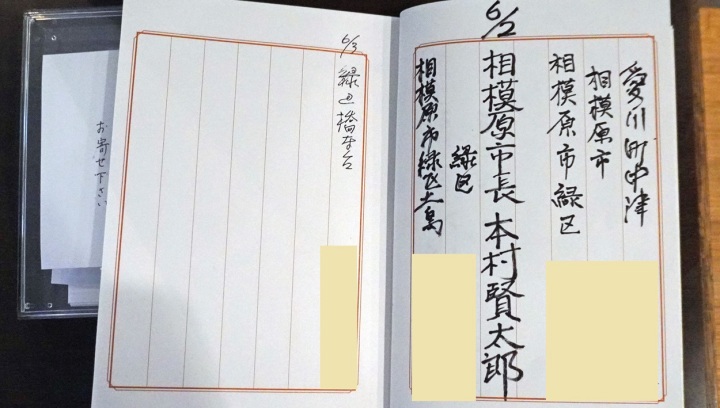 愛川町中津
相模原市
相模原市緑区
6/2
相模原市長 本村賢太郎
緑区
相模原市緑区大島
6/3
緑区橋本台
お寄せ下さい